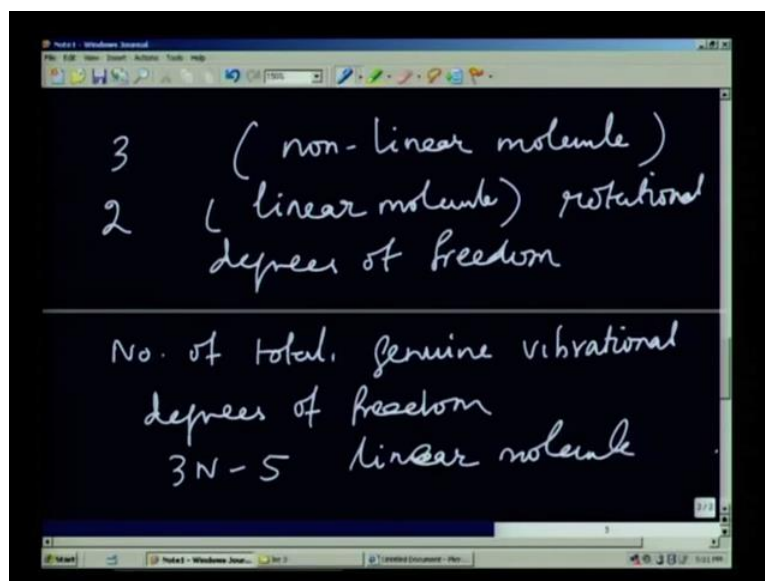 Note1 - Windows Journal
File Edit View Insert Actions Tools Help
150%
3 (non-linear molecule)
2 (linear molecule) rotational
degrees of freedom
No. of total. genuine vibrational
degrees of freedom
3N-5 linear molecule
3/3
3
Start Note1 - Windows Jour... lec 3 Untitled Document - 5:01 PM